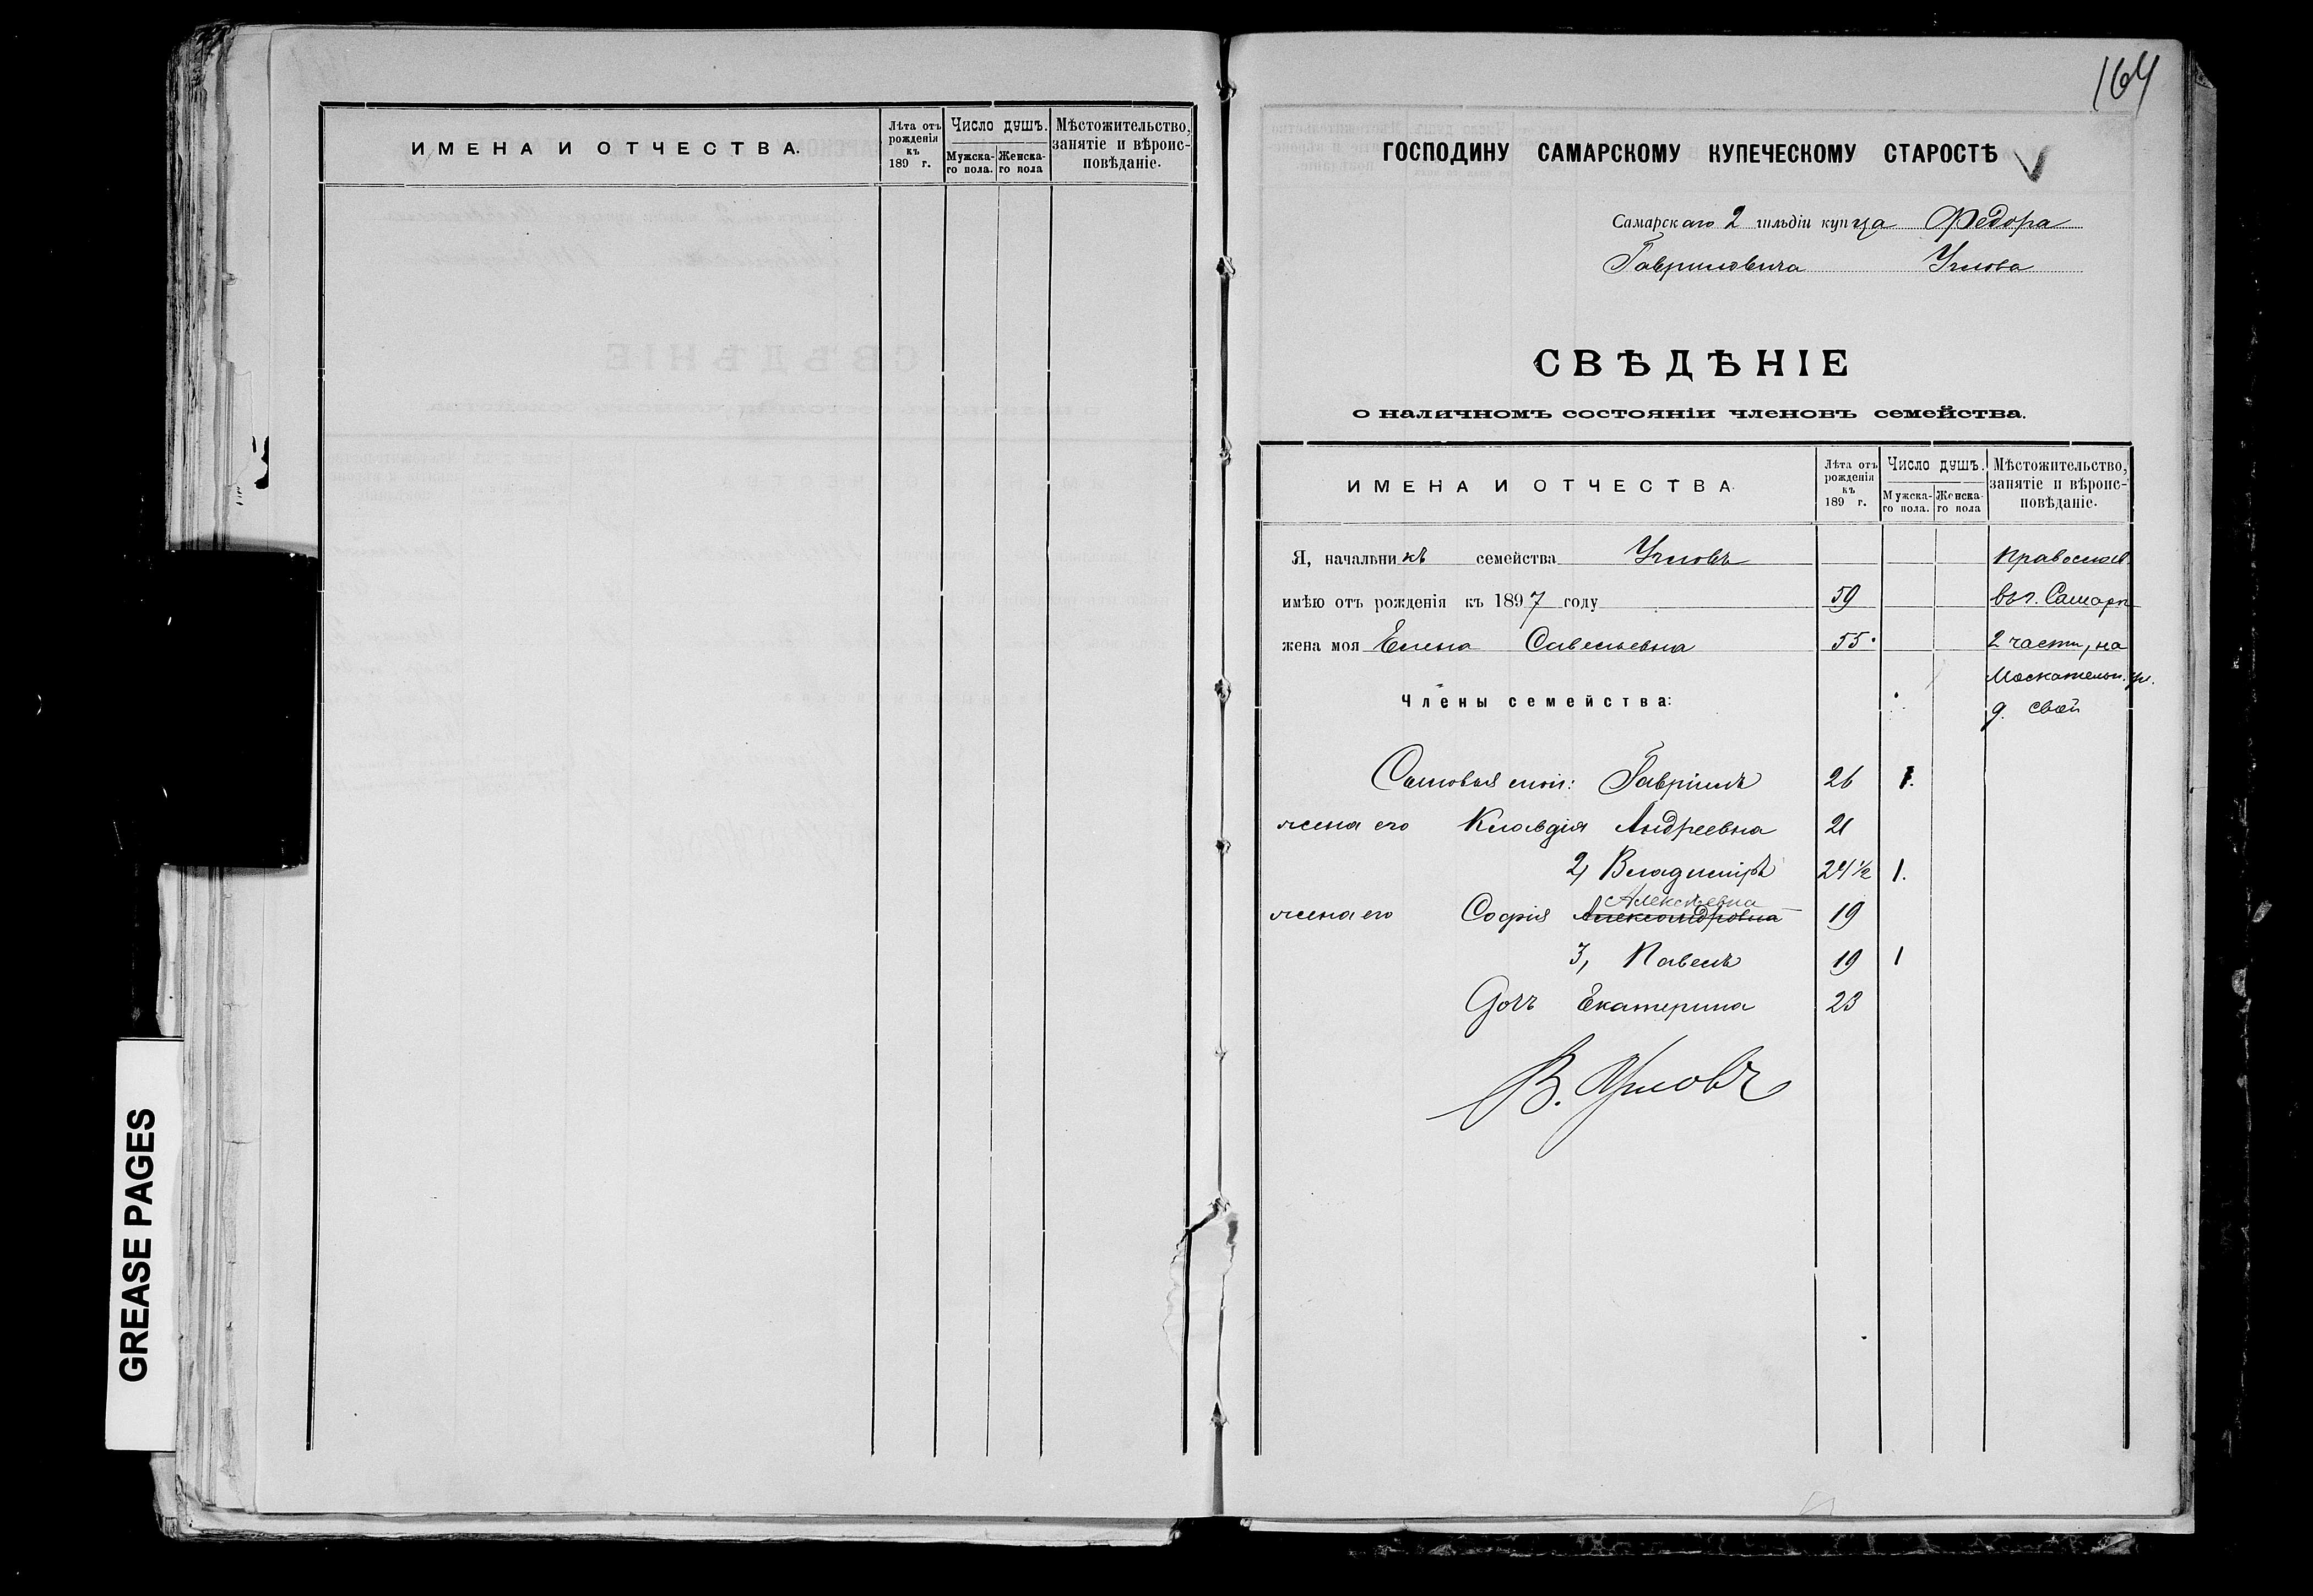 ИМЕНА И ОТЧЕСТВА.
Лѣта отъ рожденія къ 189 г.
Число душъ.
Мужска-го пола.
Женска-го пола
Мѣстожительство, занятіе и вѣроис-повѣданіе.
GREASE PAGES
164
ГОСПОДИНУ САМАРСКОМУ КУПЕЧЕСКОМУ СТАРОСТѢ
Самарскаго 2 гильдіи купца Федора
Гавриловича
СВѢДѢНІЕ
о наличномъ состояніи членовъ семейства.
ИМЕНА И ОТЧЕСТВА.
Лѣта отъ рожденія къ 189 г.
Число душъ.
Мужска-го пола.
Женска-го пола
Мѣстожительство, занятіе и вѣроис-повѣданіе.
Я, начальникъ семейства Православ.
имѣю отъ рожденія къ 1897 году 59 въ г. Самарѣ
жена моя Елена Савельевна 55. 2 части, на
Москательн. ул.
Члены семейства: д. свой
Сыновья мои: Гавріилъ 26 1.
жена его Клавдія Андреевна 21
2, Владиміръ 24 ½ 1.
Алексѣевна
жена его Софія Александровна 19
3, Павелъ 19 1
Дочь Екатерина 23
В.